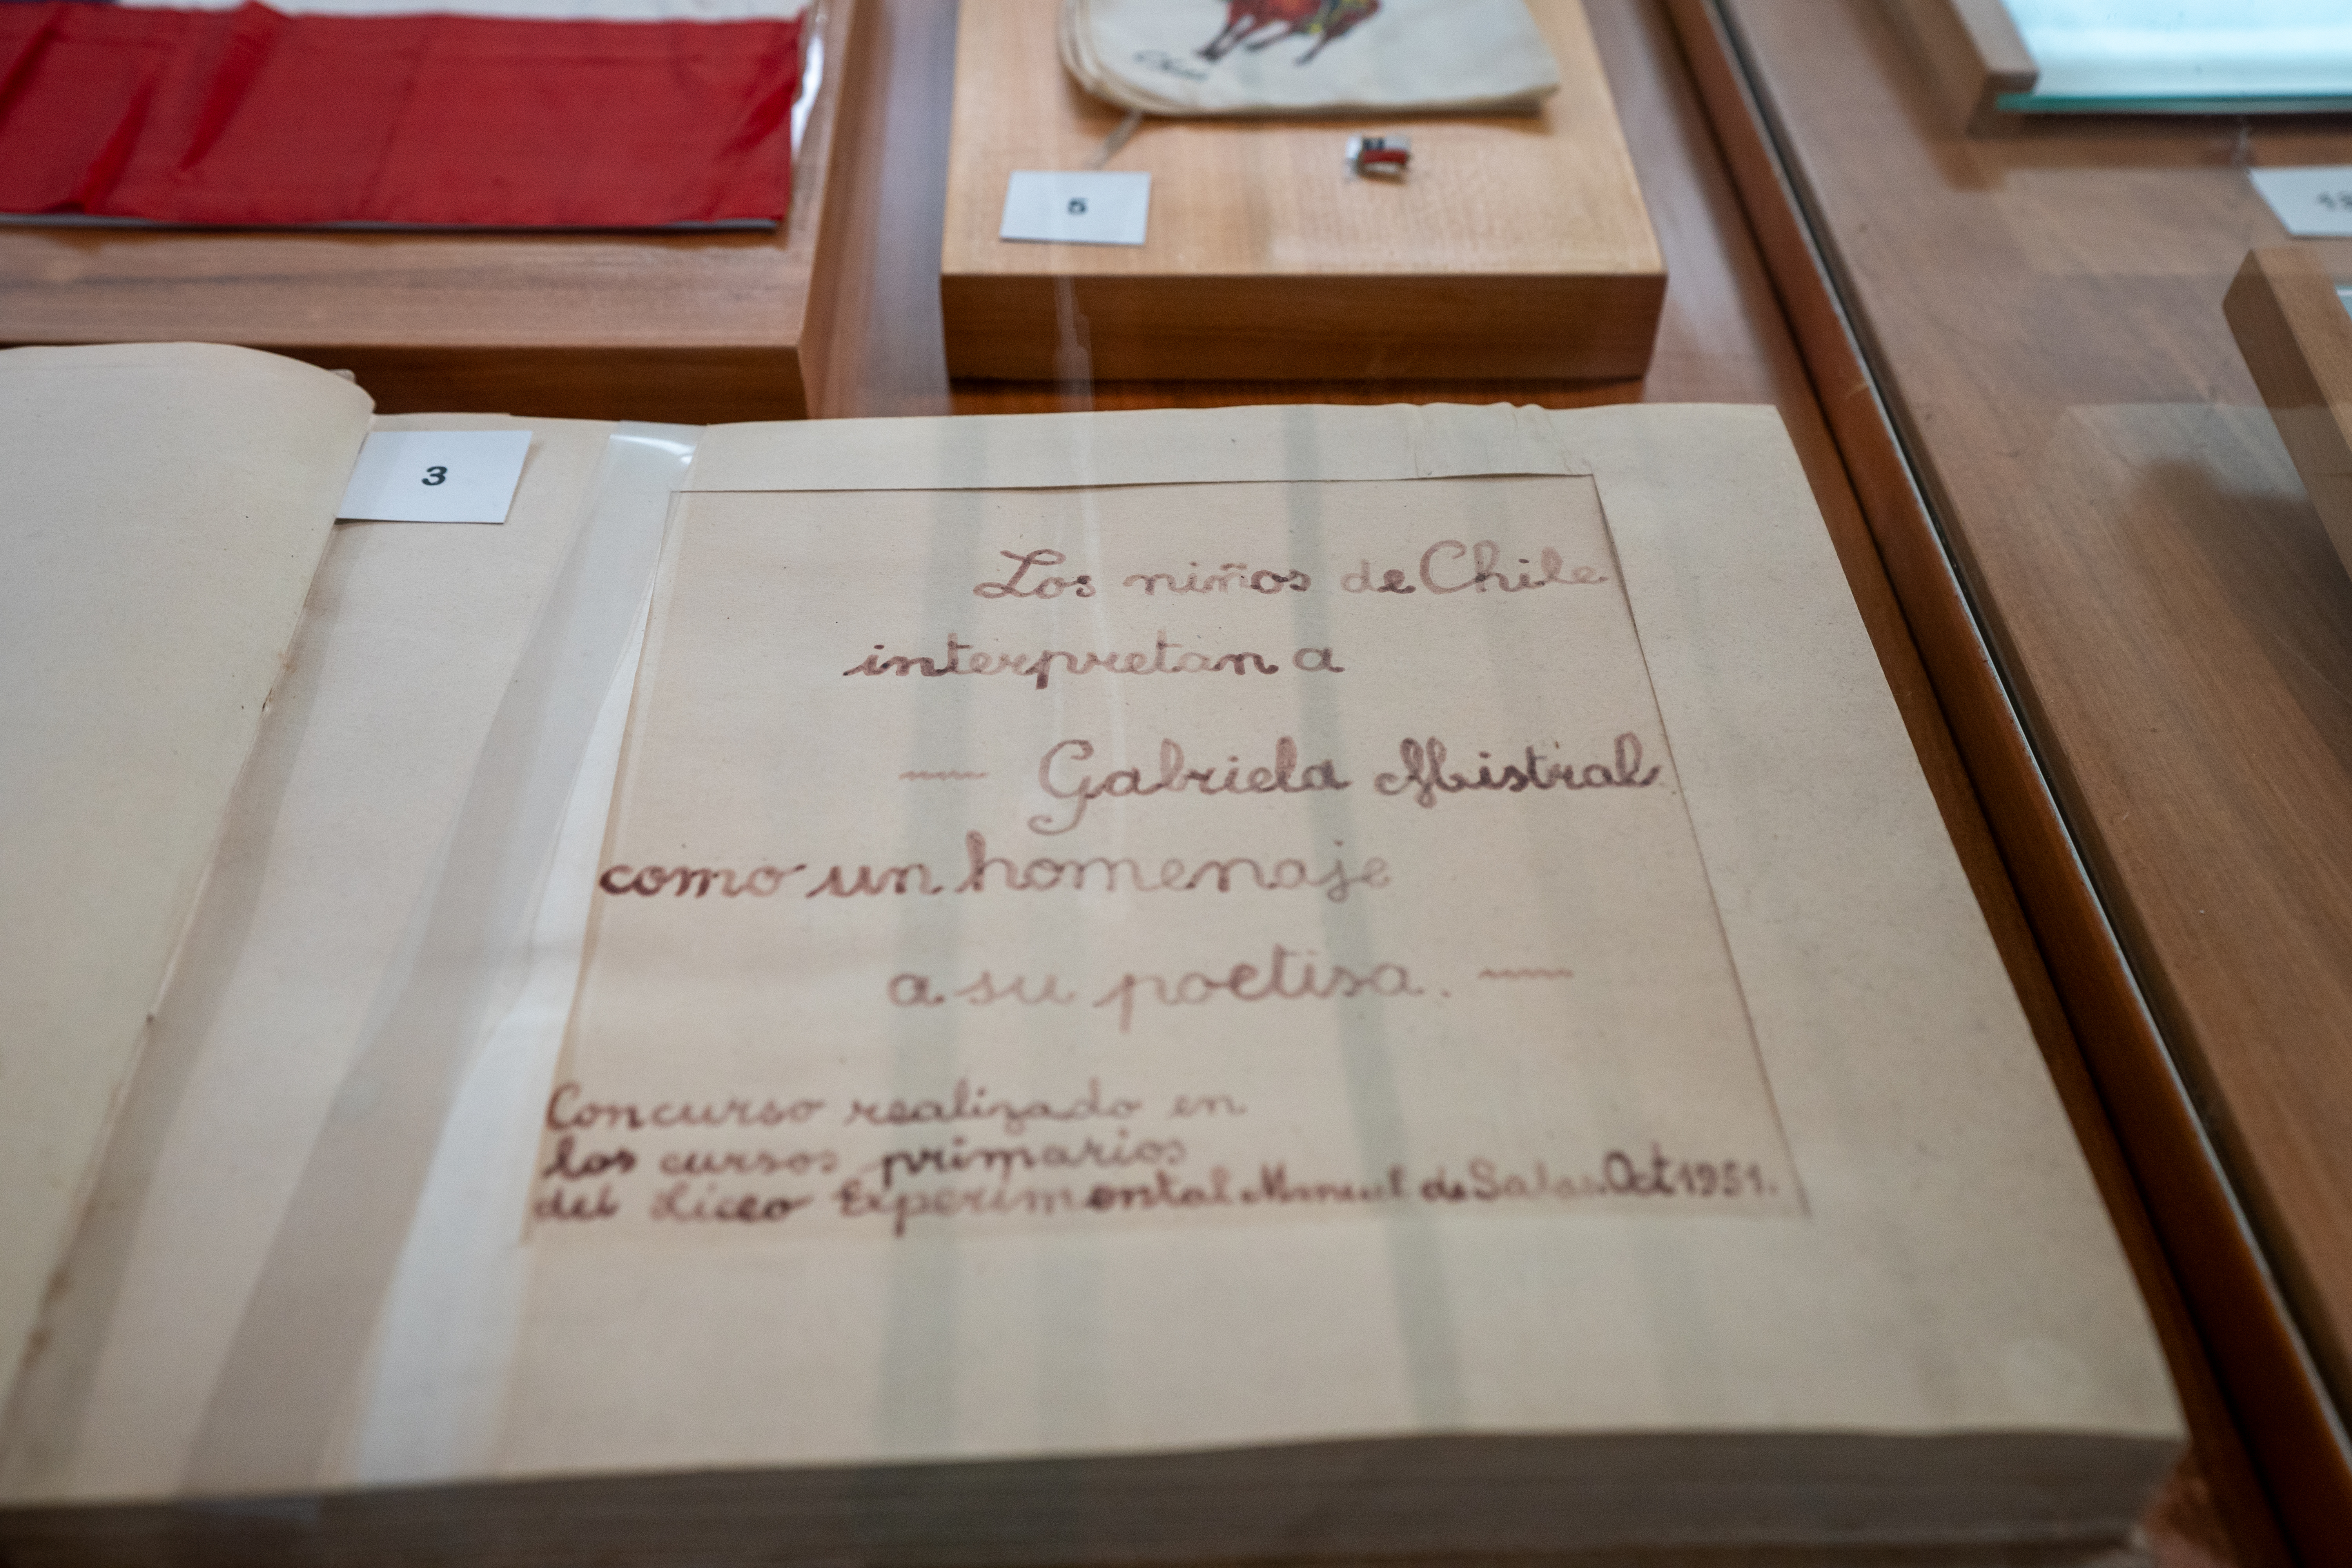 5
3
Los niños de Chile
interpretan a
Gabriela Mistral
como un homenaje
a su poetisa.
Concurso realizado en
los cursos primarios
del Liceo Experimental Manuel de Salas. Oct 1951.